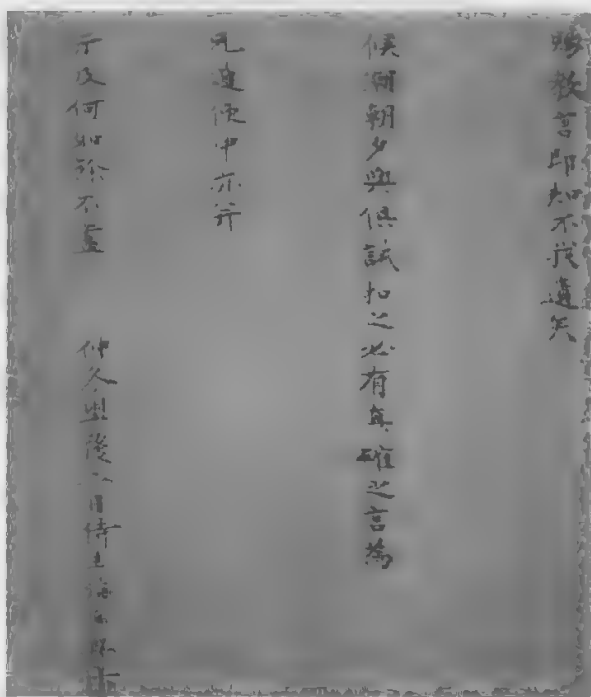 賜教言即知不我遺矣
候朝夕與俱試扣之必有真確之言為
便中亦并
示及何如餘不盡 仲冬後日侍生